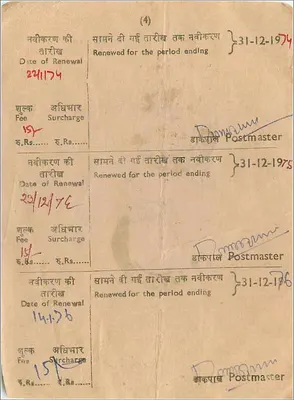 (4)
नवीकरण की सामने दी गई तारीख तक नवीकरण }31-12-1974
तारीख Renewed for the period ending
Date of Renewal
22/1/74
शुल्क अधिभार
Fee Surcharge
15/-
रु.Rs...... रु.Rs...... डाकपाल Postmaster
नवीकरण की सामने दी गई तारीख तक नवीकरण }31-12-1975
तारीख Renewed for the period ending
Date of Renewal
शुल्क अधिभार
Fee Surcharge
15/-
रु.Rs...... रु.Rs...... डाकपाल Postmaster
नवीकरण की सामने दी गई तारीख तक नवीकरण }31-12-1976
तारीख Renewed for the period ending
Date of Renewal
14.1.76
शुल्क अधिभार
Fee Surcharge
15/-
रु.Rs...... रु.Rs...... डाकपाल Postmaster